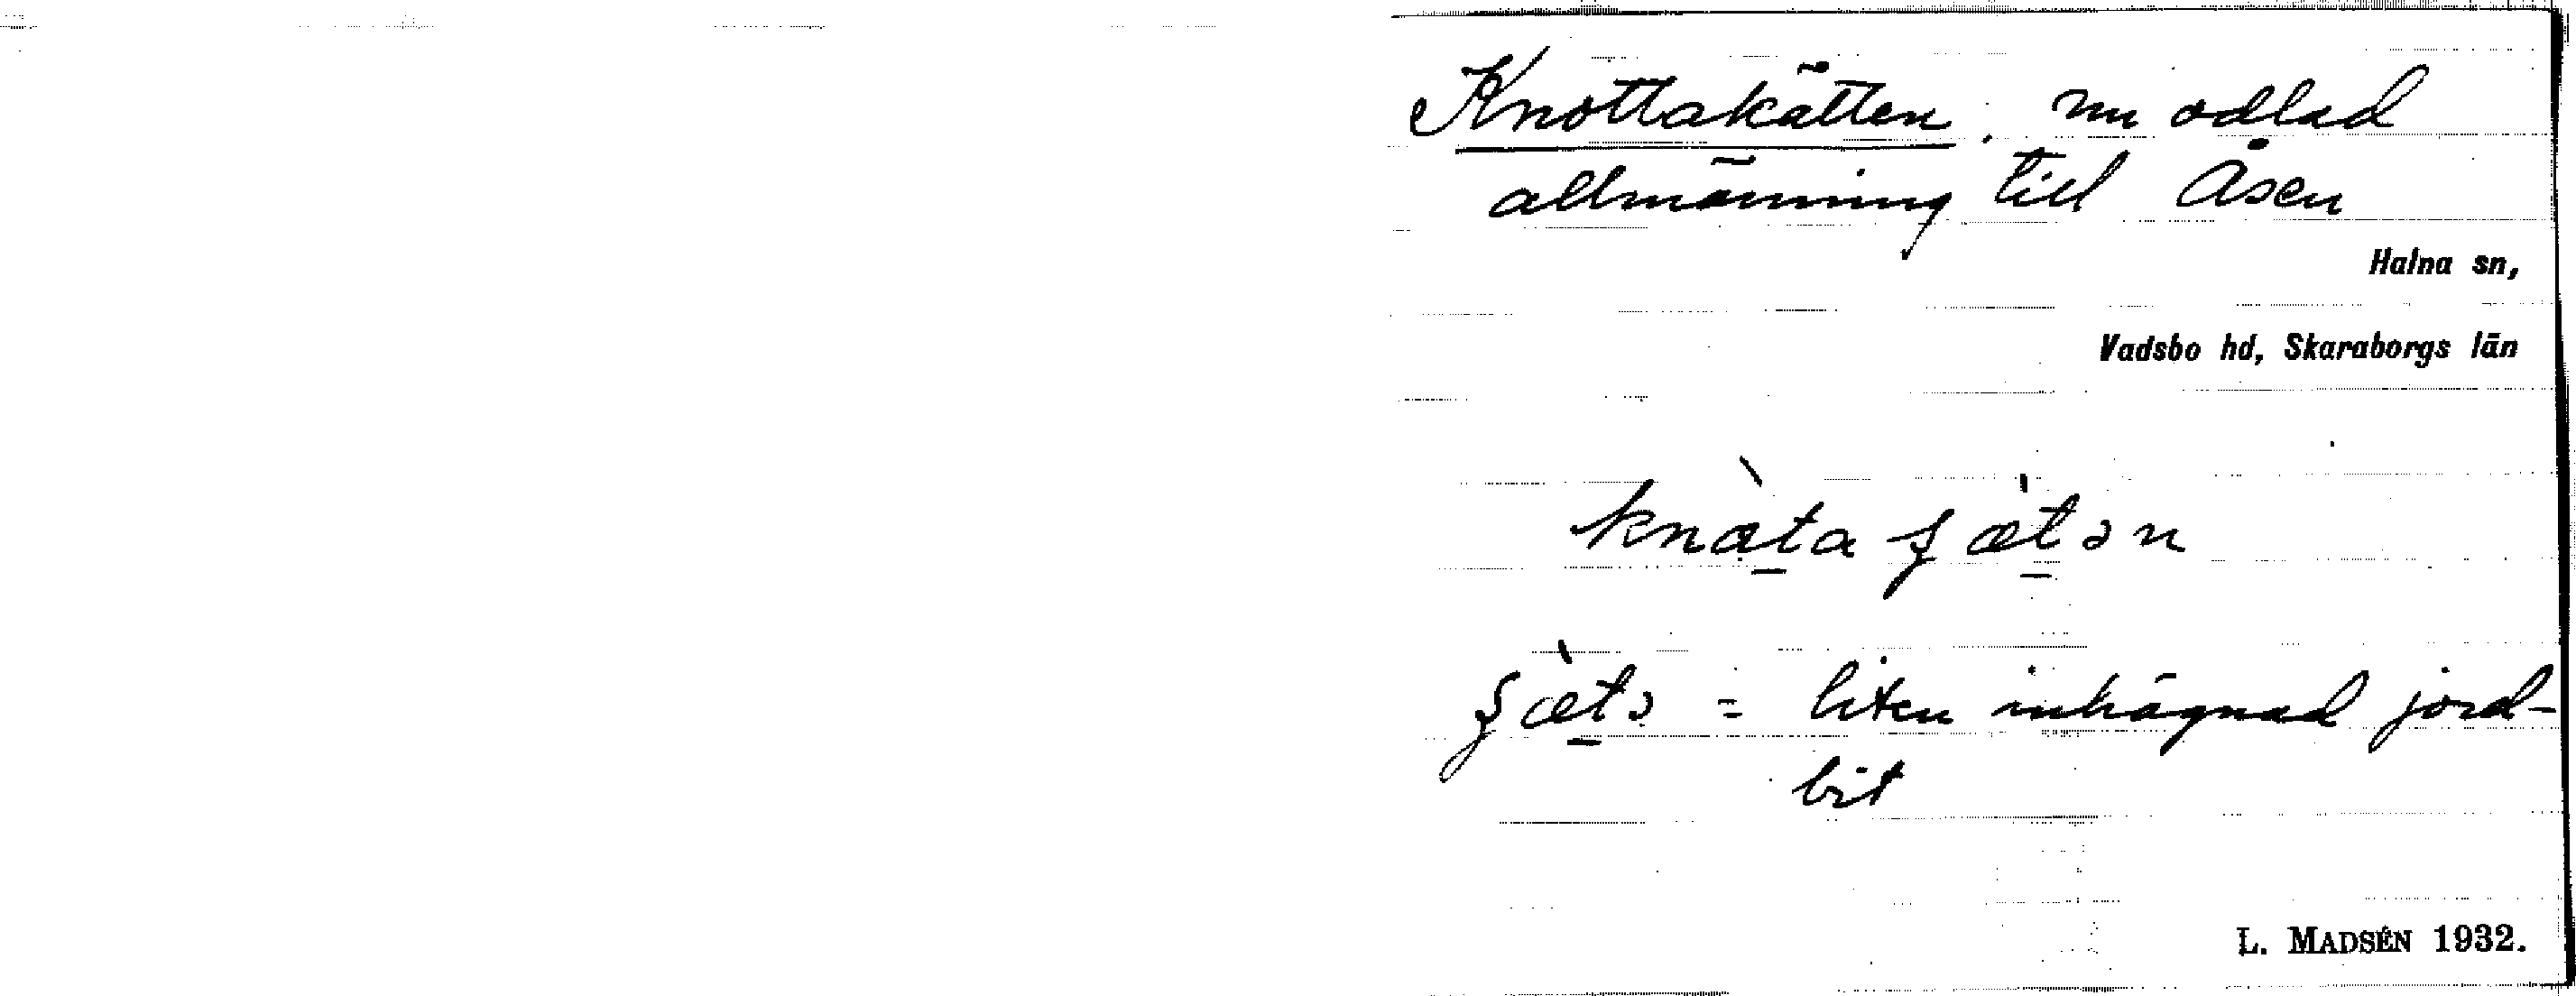 Knottakätten, nu odlad
allmänning till Åsen
Halna sn,
Vadsbo hd, Skaraborgs län
knàta ʂæ̀tən
ʂæ̀tə = liten inhägnad jord-
bit
L. MADSÉN 1932.